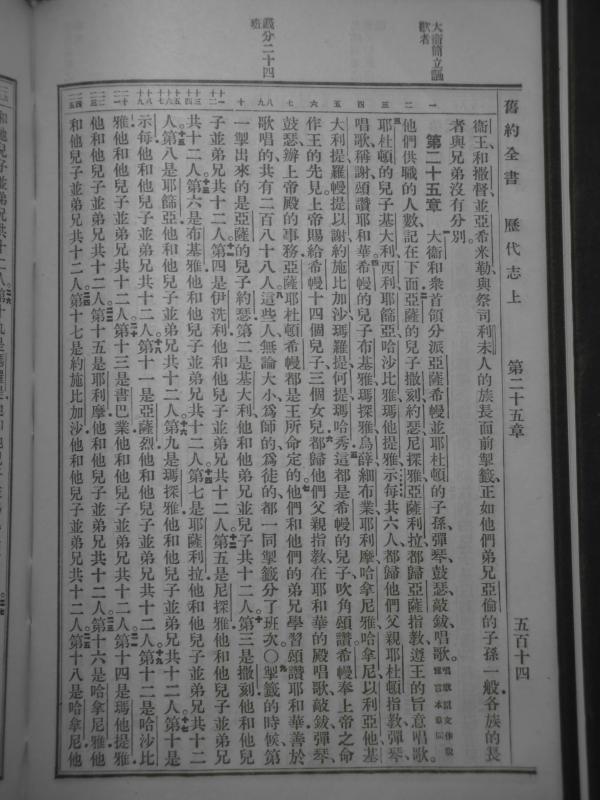 舊約全書 歷代志上 第二十五章 五百十四
大衛簡立謳
歌者
籤分二十四
班
衞王和撒督並亞希米勒與祭司利未人的族長面前掣籤正如他們弟兄亞倫的子孫一般各族的長
者與兄弟沒有分別
第二十五章 大衞和衆首領分派亞薩希幔並耶杜頓的子孫彈琴鼓瑟敲鈸唱歌
他們供職的人數記在下面亞薩的兒子撒刻約瑟尼探雅亞薩利拉都歸亞薩指教遵王的旨意唱歌
耶杜頓的兒子基大利西利耶篩亞哈沙比雅瑪他提雅示每共六人都歸他們父親耶杜頓指教彈琴
唱歌稱謝頌讚耶和華希幔的兒子布基雅瑪探雅烏薛細布業耶利摩哈拿尼雅哈拿尼以利亞他基
大利提羅幔提以謝約施比加沙瑪羅提何提瑪哈秀這都是希幔的兒子吹角頌讚希幔奉上帝之命
作王的先見上帝賜給希幔十四個兒子三個女兒都歸他們父親指教在耶和華的殿唱歌敲鈸彈琴
鼓瑟辦上帝殿的事務亞薩耶杜頓希幔都是王所命定的他們和他們的弟兄學習頌讚耶和華善於
歌唱的共有二百八十八人這些人無論大小爲師的爲徒的都一同掣籤分了班次〇掣籤的時候第
一掣出來的是亞薩的兒子約瑟第二是基大利他和他弟兄並兒子共十二人第三是撒刻他和他兒
子並弟兄共十二人第四是伊洗利他和他兒子並弟兄共十二人第五是尼探雅他和他兒子並弟兄
共十二人第六是布基雅他和他兒子並弟兄共十二人第七是耶薩利拉他和他兒子並弟兄共十二
人第八是耶篩亞他和他兒子並弟兄共十二人第九是瑪探雅他和他兒子並弟兄共十二人第十是
示每他和他兒子並弟兄共十二人第十一是亞薩烈他和他兒子並弟兄共十二人第十二是哈沙比
雅他和他兒子並弟兄共十二人第十三是書巴業他和他兒子並弟兄共十二人第十四是瑪他提雅
他和他兒子並弟兄共十二人第十五是耶利摩他和他兒子並弟兄共十二人第十六是哈拿尼雅他
和他兒子並弟兄共十二人第十七是約施比加沙他和他兒子並弟兄共十二人第十八是哈拿尼他